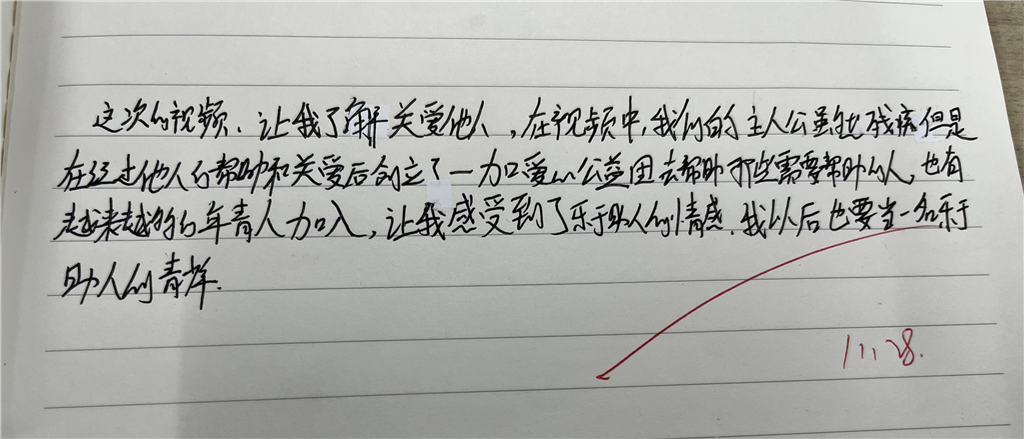 这次的视频、让我了解关爱他人，在视频中，我们的主人公虽他残疾但是
在经过他人的帮助和关爱后创立了一加口爱心公益团去帮助那些需要帮助的人，也有
越来越多的年青人加入，让我感受到了乐于助人的情感．我以后也要当一名乐于
助人的青年．
11.28.